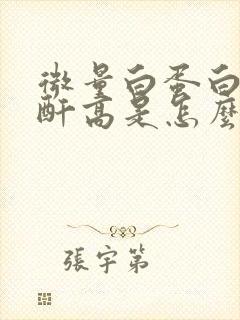 微量白蛋白
酐高是怎麼
張宇第